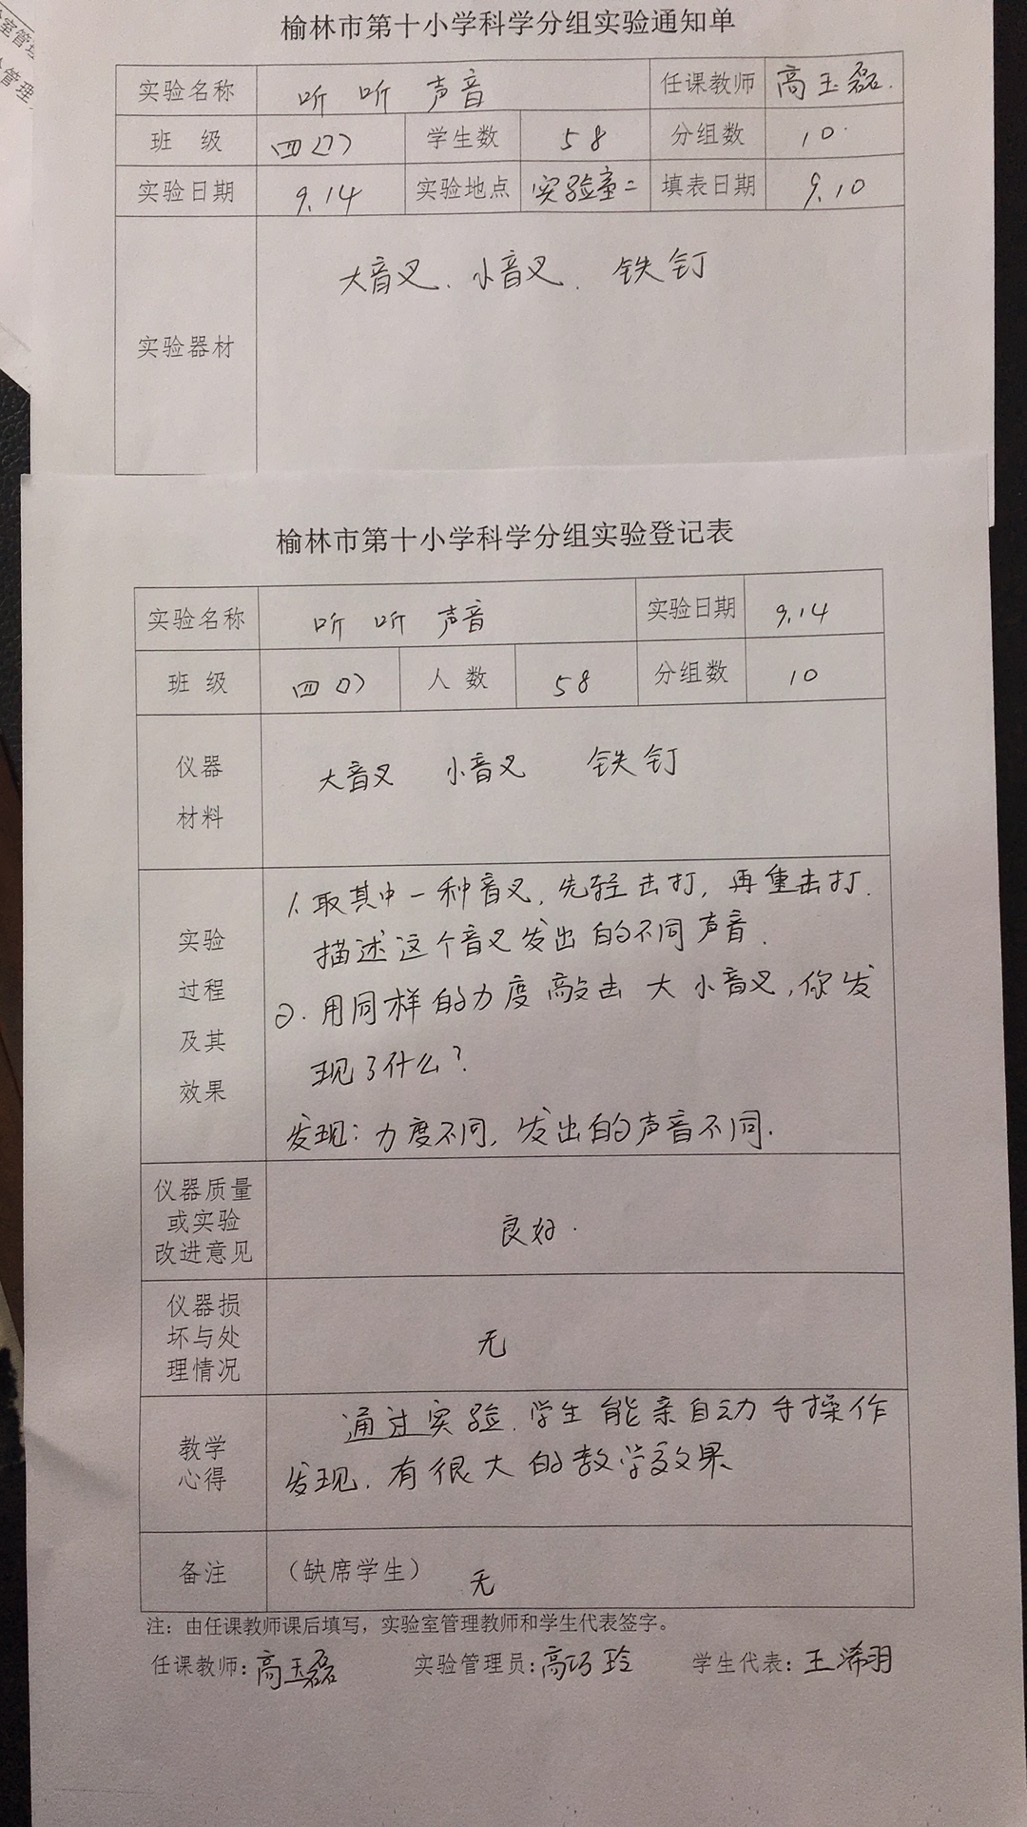 榆林市第十小学科学分组实验通知单
实验名称 听听声音 任课教师 高玉磊
班 级 四(7) 学生数 58 分组数 10
实验日期 9.14 实验地点 实验室二 填表日期 9.10
实验器材 大音叉、小音叉、铁钉
榆林市第十小学科学分组实验登记表
实验名称 听听声音 实验日期 9.14
班 级 四 人 数 58 分组数 10
仪器
材料
大音叉 小音叉 铁钉
实验
过程
及其
效果
1.取其中一种音叉,先轻击打,再重击打.
描述这个音叉发出的不同声音.
2.用同样的力度敲击大小音叉,你发
现了什么?
发现:力度不同,发出的声音不同.
仪器质量
或实验
改进意见
良好.
仪器损
坏与处
理情况
无
教学
心得
通过实验,学生能亲自动手操作
发现.有很大的教学效果
备注 (缺席学生) 无
注:由任课教师课后填写,实验室管理教师和学生代表签字。
任课教师:高玉磊 实验管理员:高巧玲 学生代表:王浠羽